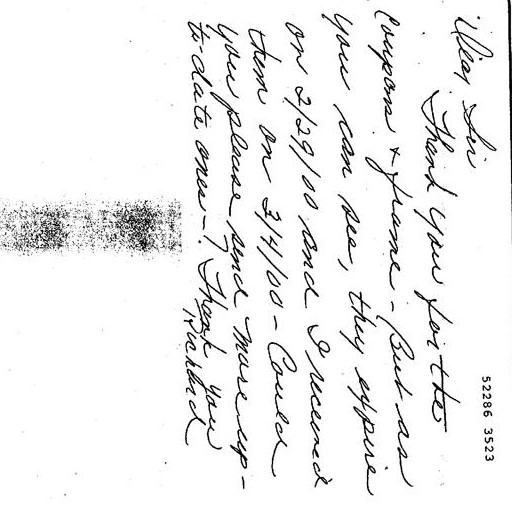 Dear Sir
Thank you for the
Coupons & frame - But as
you can see, they expire
on 2/29/00 and I received
them on 3/4/00 - Could
you please send more up-
to-date ones - ? Thank you
Richard
52286 3523